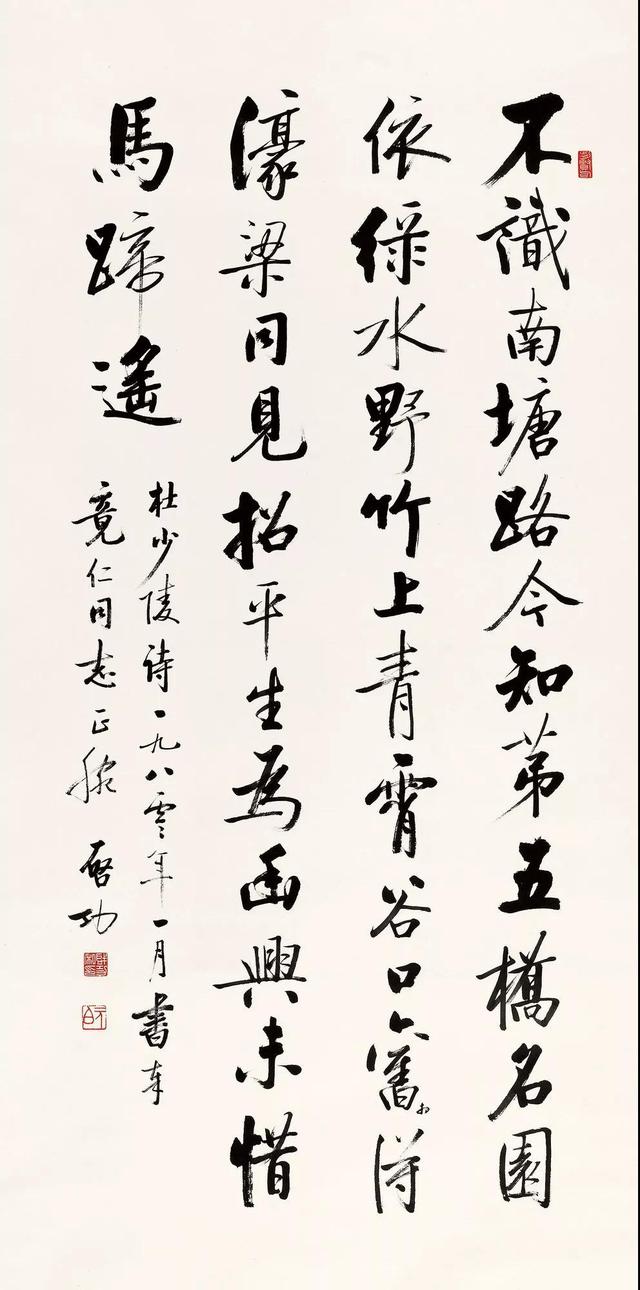 不識南塘路今知苐五橋名園
依綠水野竹上青霄谷口舊得
濠梁同見招平生為幽興未惜
馬蹄遙
杜少陵詩一九八零年一月書奉
竟仁同志正腕 啓功